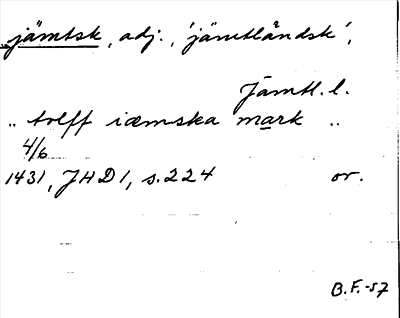 jämtsk, adj., 'jämtländsk',
Jämtl. l.
.. tolff iæmska mark ..
4/6
1431, JHD 1, s. 224 or.
B.F.-57